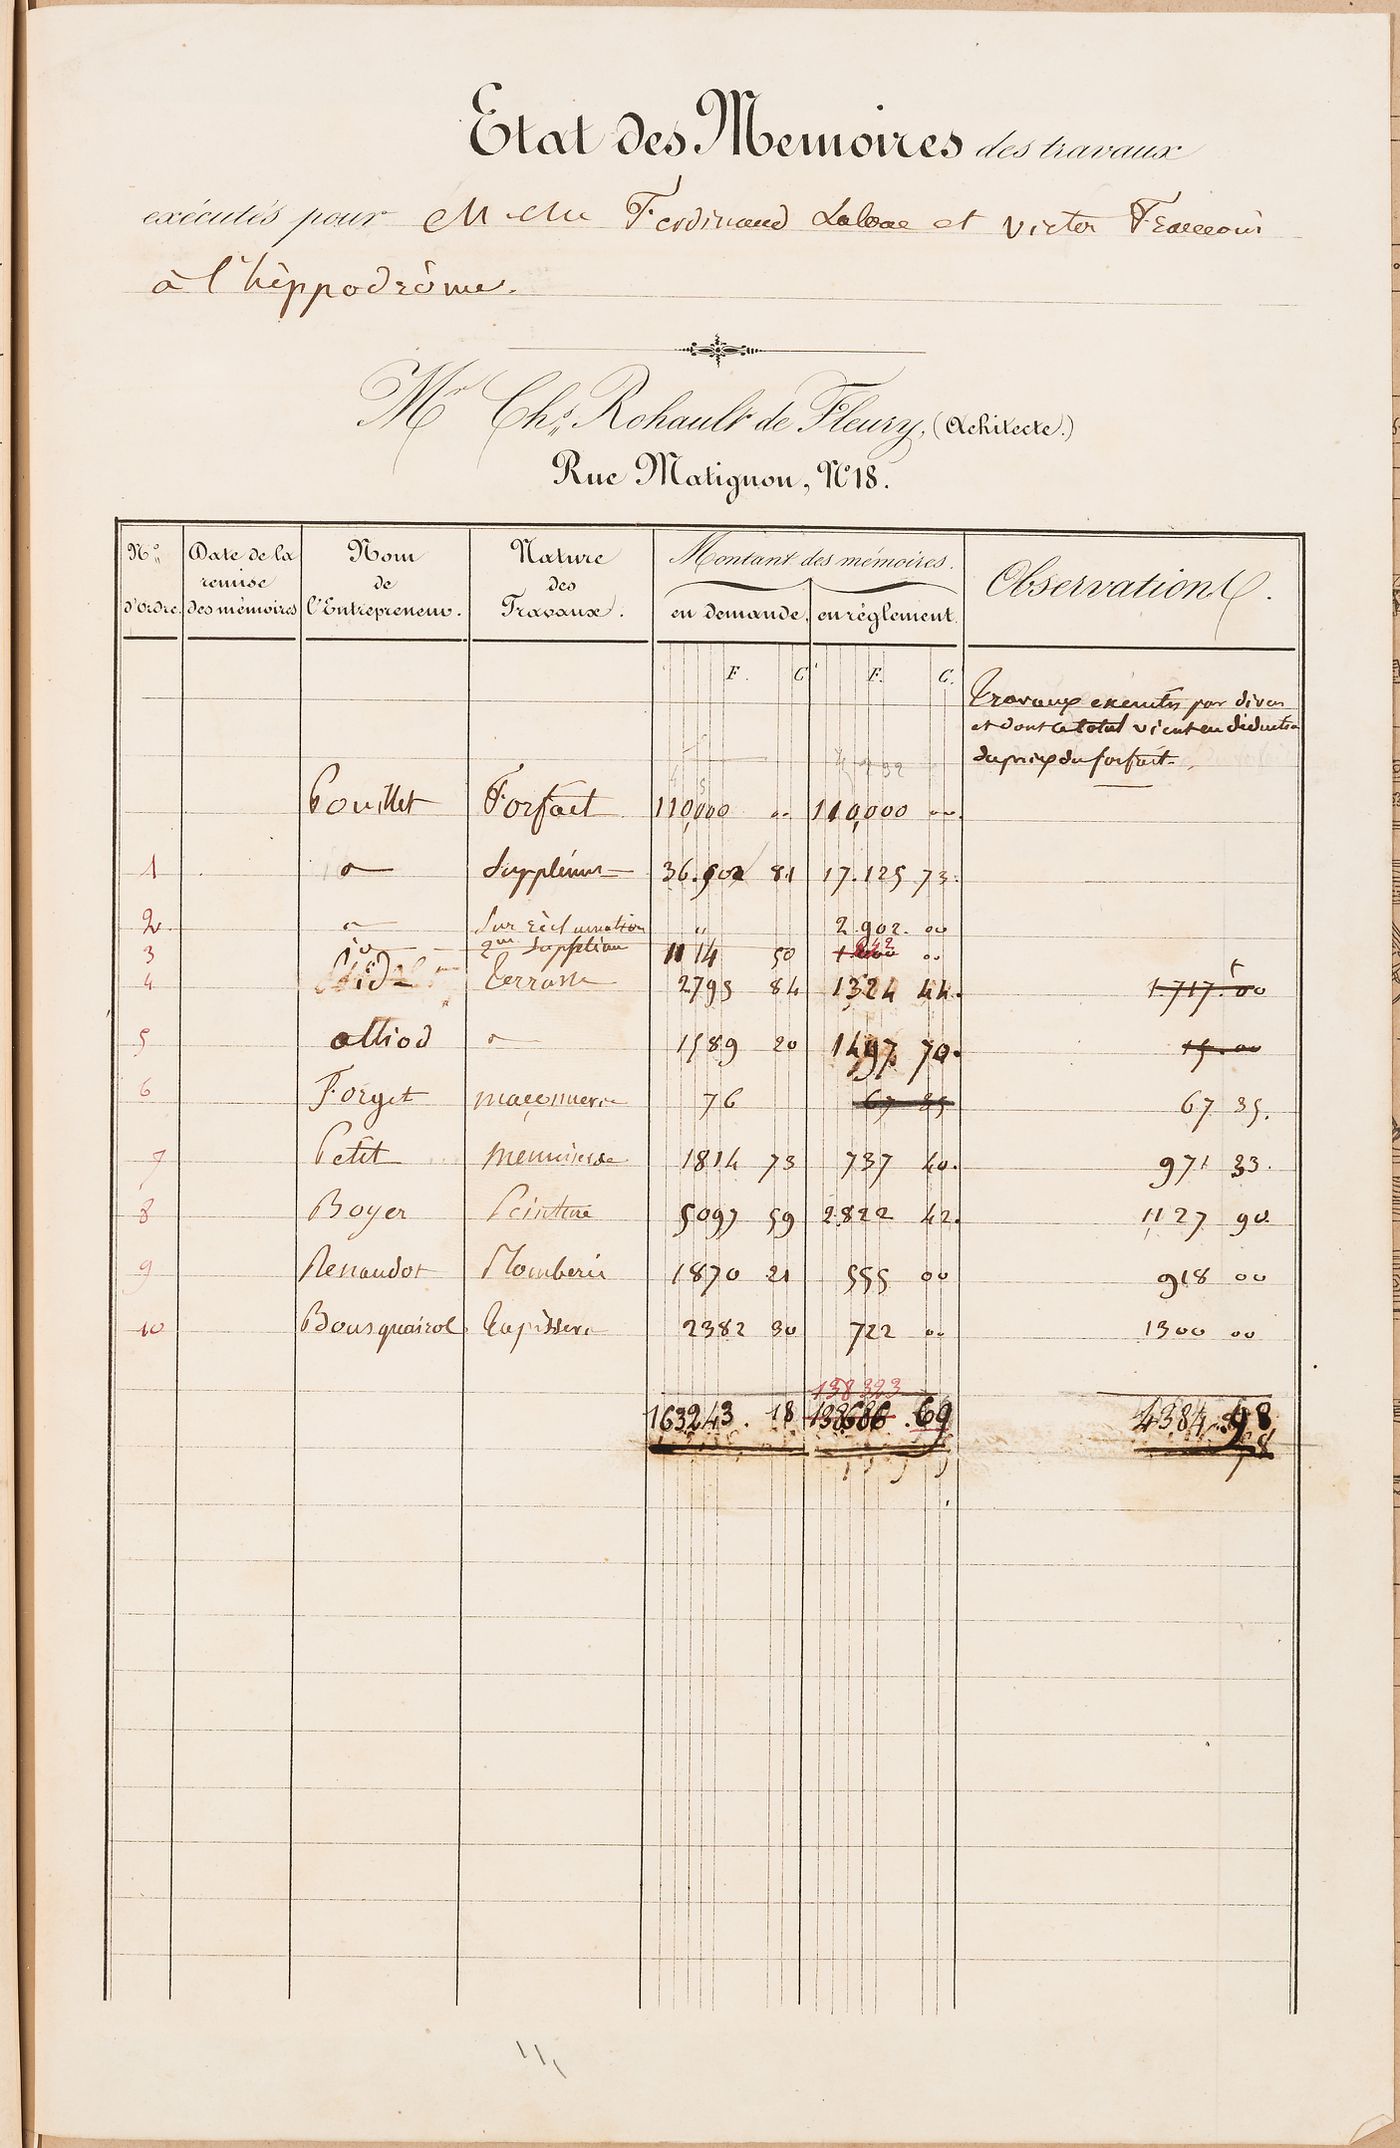 Etat des Memoires des travaux
exécutés pour M Ferdinand et Victor
à l'hippodrôme.
Mr Chs. Rohault de Fleury, (Architecte.)
Rue Matignon, No 18.
No. d'Ordre. Date de la remise des mémoires Nom de l'Entrepreneur. Nature des Travaux. Montant des mémoires. en demande. en réglement. Observations.
F. C. F. C.
Travaux executés par divers
et dont le total vient en déduction
du prix du forfait.
Pouillet Forfait 110,000 " 110,000 "
1 d° Supplément 36.502 81 17.125 73.
2 d° Sur réclamation " 2.902. 00
3 d° 2me Supplém 1114 50 642 00
4 Terrasse 2795 84 1324 44. 1717.00
5 Alliod d° 1589 20 1497 70. 15.00
6 Forget maçonnerie 76 67 35 67 35.
7 Petit Menuiserie 1814 73 737 40. 971 33.
8 Boyer Peinture 5097 59 2822 42. 1127 90
9 Renaudot Plomberie 1870 21 555 00 918 00
10 Bousquairol Tapisserie 2382 30 722 00 1300 00
138323
163243. 18 138686.69 4384.98